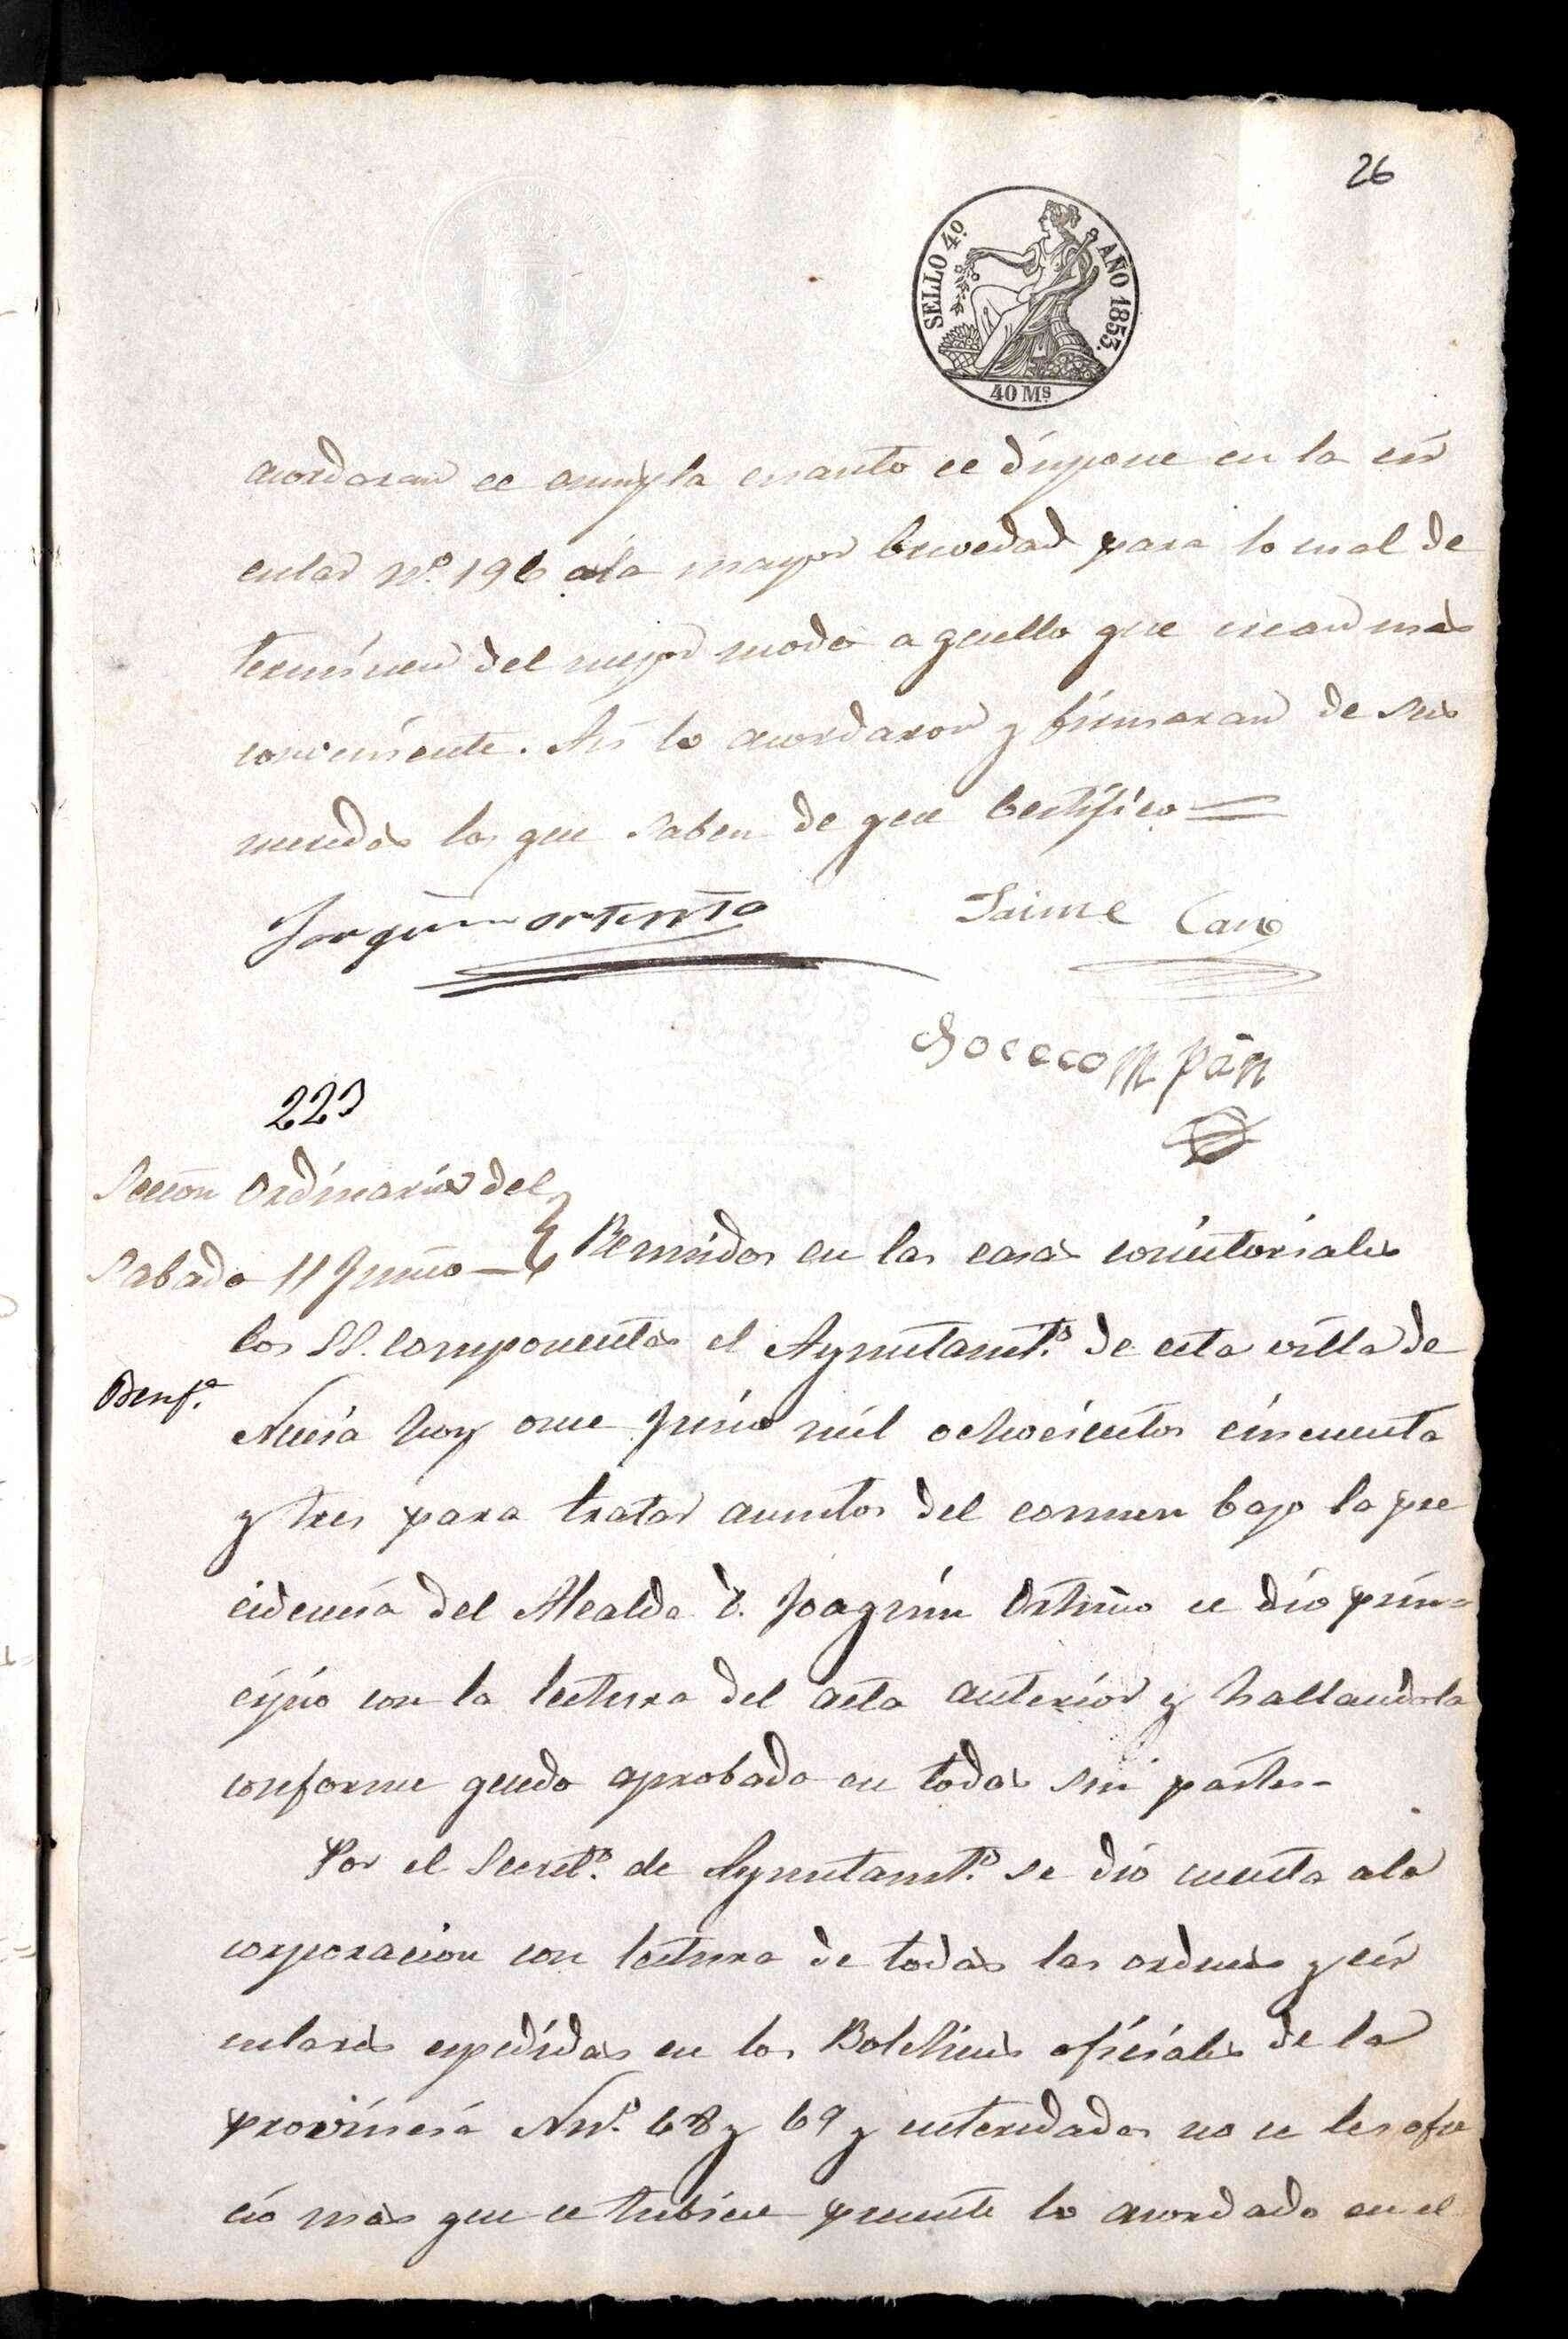 26
SELLO 4º AÑO 1853.
40 Ms
acordaran ce cumpla cuanto ce dispone en la cir
cular nº 196 ala mayor brevedad para lo cual de
terminen del mejor modo aquello que crean mas
conveniente. Asi lo acordaron y firmaran de sus
mercedes los que saben de que Certifico =
Joaquin ortuño
Jaime Cano
223
Secion Ordinaria del
Sabado 11 Junio
Reunidos en las casas concistoriales
los SS. componentes el Ayuntamtº de esta villa de
Nucia hoy once Junio mil ochocientos cincuenta
y tres para tratar asuntos del comun bajo la pre
cidencia del Alcalde D. Joaquin Ortuño ce dio prin=
cipio con la lectura del acta anterior y hallandola
conforme quedo aprobada en todas sus partes-
Por el Secretº de Ayuntamtº se dio cuenta ala
corporacion con lectura de todas las ordenes y cir
culares espedidas en los Boletines oficiales de la
provincia Nuº 68 y 69 y enteradados no ce les ofre
cio mas que ce tubiese presente lo acordado en el